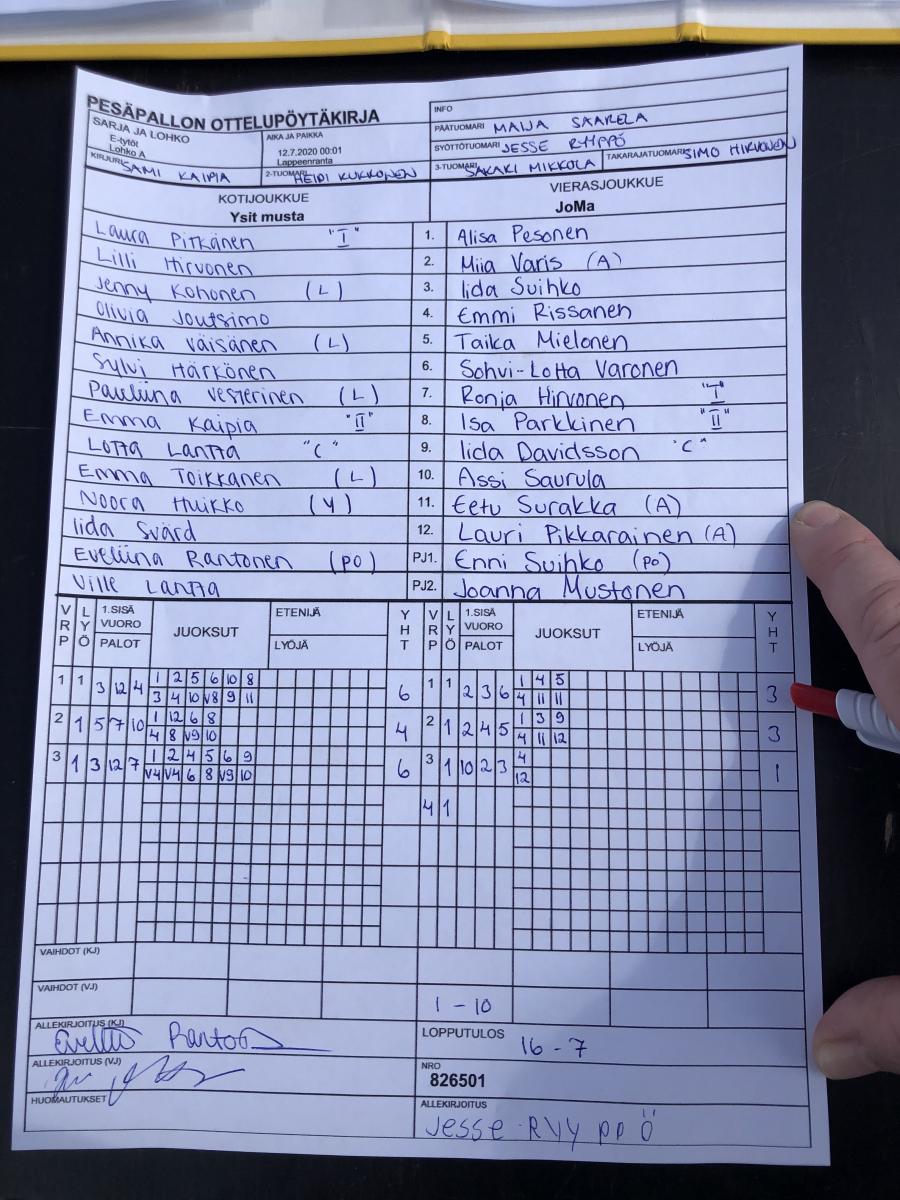 PESÄPALLON OTTELUPÖYTÄKIRJA
INFO
SARJA JA LOHKO
E-tytöt
Lohko A
AIKA JA PAIKKA
12.7.2020 00:01
Lappeenranta
PÄÄTUOMARI MAIJA SAARELA
SYÖTTÖTUOMARI JESSE RYYPPÖ
KIRJURI SAMI KAIPIA
2-TUOMARI HEIDI KUKKONEN
3-TUOMARI SAKARI MIKKOLA
TAKARAJATUOMARI SIMO HIRVONEN
KOTIJOUKKUE
Ysit musta
VIERASJOUKKUE
JoMa
Laura Pitkänen "I" 1. Alisa Pesonen
Lilli Hirvonen 2. Miia Varis (A)
Jenny Kohonen (L) 3. Iida Suihko
Olivia Joutsimo 4. Emmi Rissanen
Annika Väisänen (L) 5. Taika Mielonen
Sylvi Härkönen 6. Sohvi-Lotta Varonen
Pauliina Vesterinen (L) 7. Ronja Hirvonen "I"
Emma Kaipia "II" 8. Isa Parkkinen "II"
Lotta Lantta "C" 9. Iida Davidsson "C"
Emma Toikkanen (L) 10. Assi Saurula
Noora Huikko (Y) 11. Eetu Surakka (A)
Iida Svärd 12. Lauri Pikkarainen (A)
Eveliina Rantonen (PO) PJ1. Enni Suihko (PO)
Ville Lantta PJ2. Joanna Mustonen
VRP LYÖ 1.SISÄ VUORO PALOT JUOKSUT ETENIJÄ LYÖJÄ YHT VRP LYÖ 1.SISÄ VUORO PALOT JUOKSUT ETENIJÄ LYÖJÄ YHT
1 1 3 12 4 1 2 5 6 10 8 6 1 1 2 3 6 1 4 5 3
3 4 10 V8 9 11 4 11 11
2 1 5 7 10 1 12 6 8 4 2 1 2 4 5 1 3 9 3
4 8 V9 10 4 11 12
3 1 3 12 7 1 2 4 5 6 9 6 3 1 10 2 3 4 1
V4 V4 6 8 V9 10 12
4 1
VAIHDOT (KJ)
VAIHDOT (VJ)
1 - 10
ALLEKIRJOITUS (KJ)
LOPPUTULOS 16 - 7
ALLEKIRJOITUS (VJ)
NRO
826501
HUOMAUTUKSET
ALLEKIRJOITUS
Jesse Ryyppö